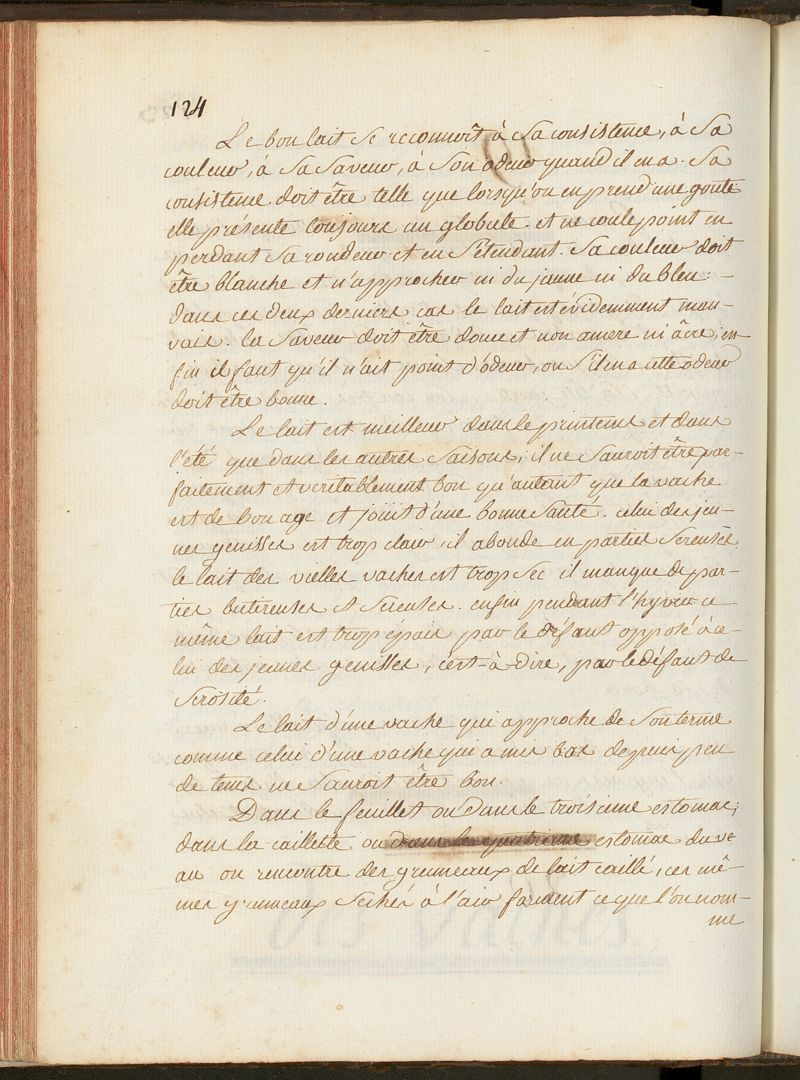 124
Le bon lait se reconnoît à sa consistence, à sa
couleur, à sa saveur, à son odeur quand il en a. Sa
consistence doit être telle que lorsqu'on en prend une goute
elle présente toujours un globule et ne coule point en
perdant sa rondeur et en s'étendant. Sa couleur doit
être blanche et n'approcher ni du jaune ni du bleu: -
dans ces deux derniers cas le lait est évidemment mau-
vais. la saveur doit être douce et non amere ni âcre, en-
fin il faut qu'il n'ait point d'ódeur, ou s'il en a cette odeur
doit être bonne.
Le lait est meilleur dans le printems et dans
l'été que dans les autres saisons; il ne sauroit être par-
faitement et veritablement bon qu'autant que la vache
est de bon age et joüit d'une bonne santé. celui des jeu-
nes genisses est trop clair, il abonde en parties sereuses
le lait des vielles vaches est trop sec il manque de par-
ties butereuses et séreuses. enfin pendant l'hyver ce
même lait est trop épais par le défaut opposé à ce-
lui des jeunes genisses, c'est-à-dire, par le défaut de
serosité.
Le lait d'une vache qui approche de son terme
comme celui d'une vache qui a mis bas depuis peu
de tems ne sauroit être bon.
Dans le feuillet ou dans le troisieme estomac,
dans la caillette ou dans le quatrieme estomac du ve-
au on rencontre des grumeaux de lait caillé, ces mê-
mes grumeaux sechés à l'air forment ce que l'on nom-
me